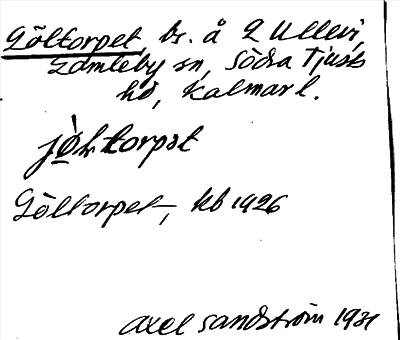 Göltorpet, bs. å 2 Ullevi,
Gamleby sn, Södra Tjusts
hd, Kalmar l.
jö̀ltorpət
Göltorpet, kb 1926
Axel Sandström 1931